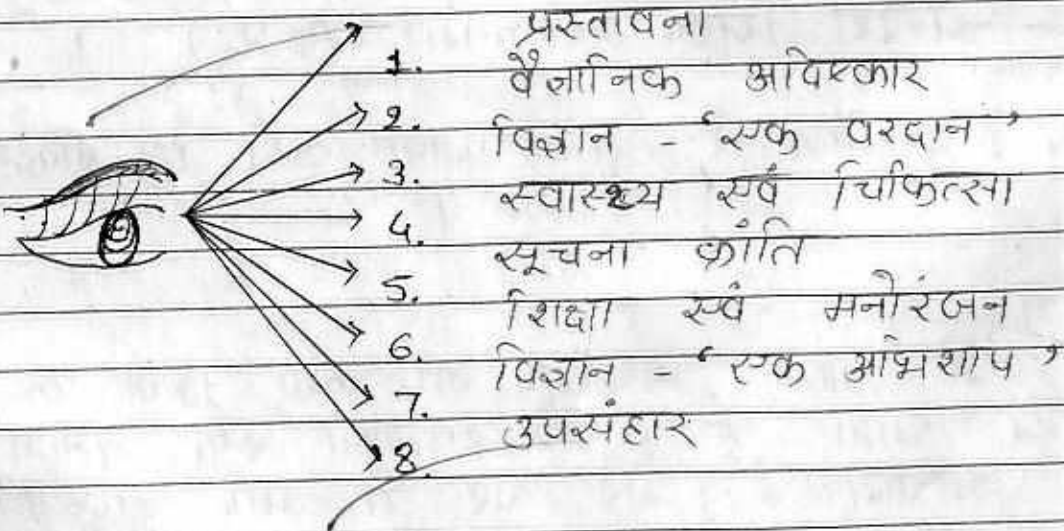 1. प्रस्तावना
2. वैज्ञानिक अविष्कार
3. विज्ञान - 'एक वरदान'
4. स्वास्थ्य एवं चिकित्सा
5. सूचना क्रांति
6. शिक्षा एवं मनोरंजन
7. विज्ञान - 'एक अभिशाप'
8. उपसंहार